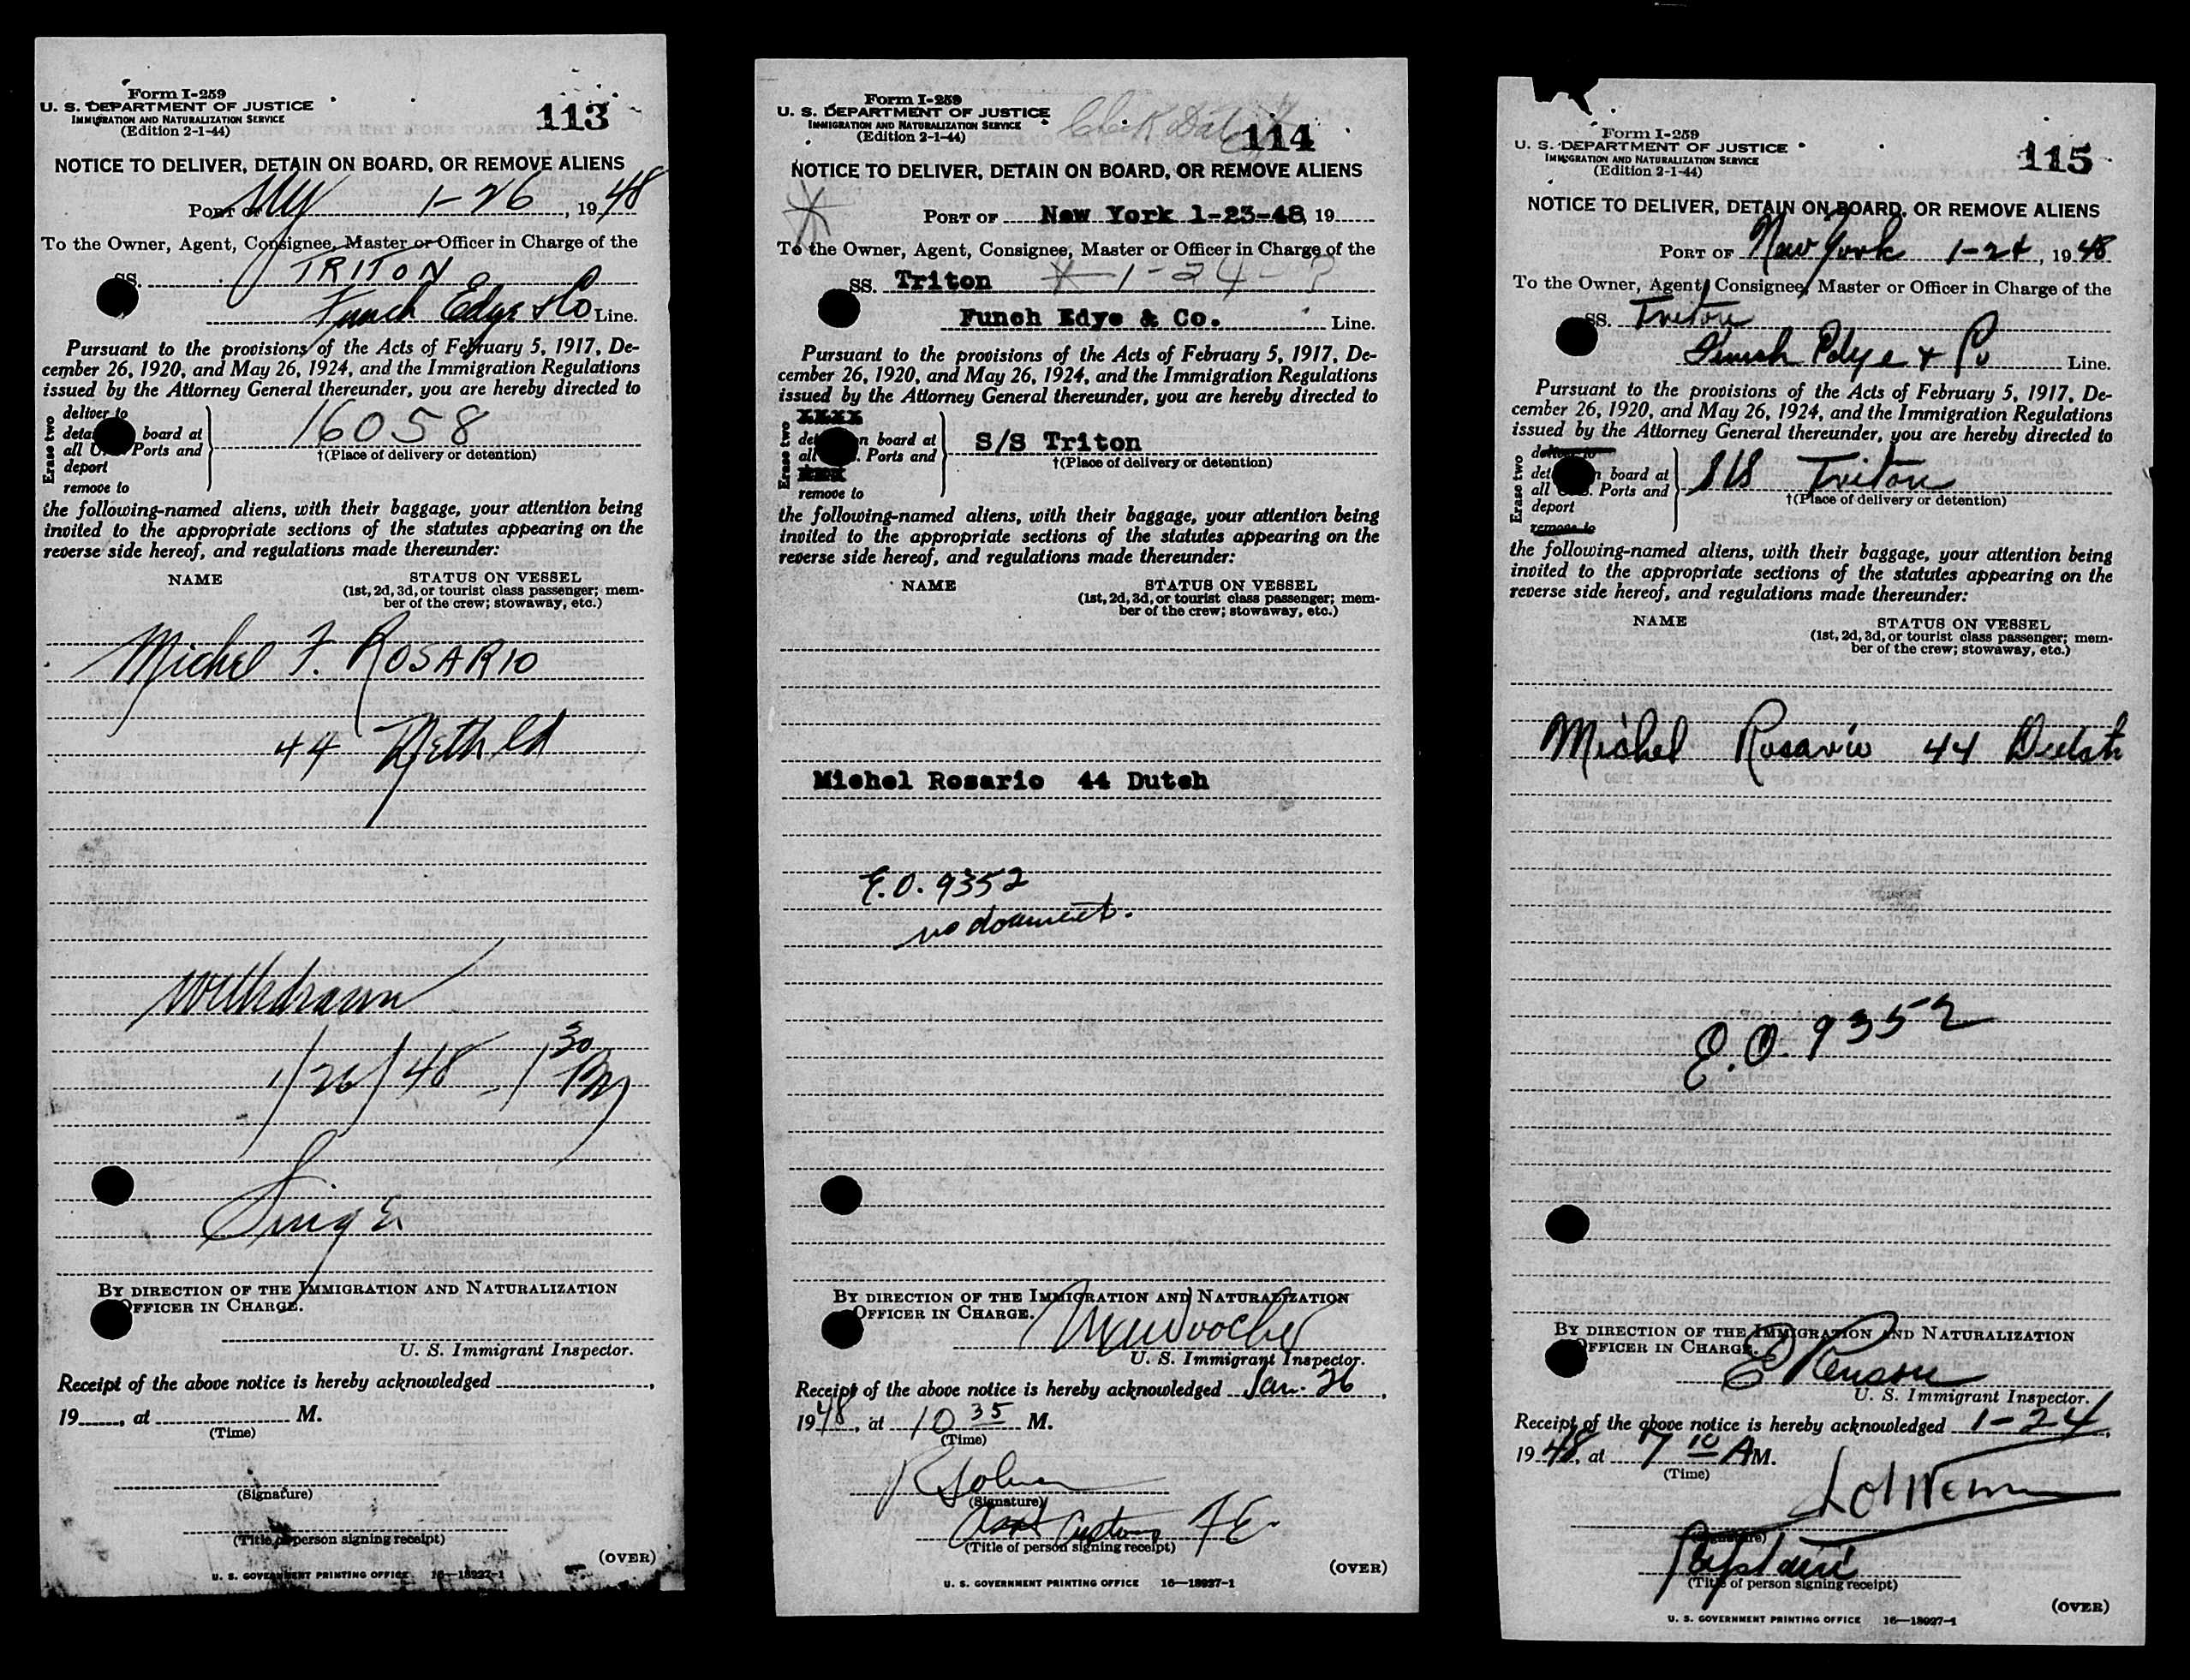 Form I-259
U. S. DEPARTMENT OF JUSTICE
IMMIGRATION AND NATURALIZATION SERVICE
(Edition 2-1-44)
113
NOTICE TO DELIVER, DETAIN ON BOARD, OR REMOVE ALIENS
PORT OF NY 1-26, 1948
To the Owner, Agent, Consignee, Master or Officer in Charge of the
SS. TRITON
Funch Edye & Co Line.
Pursuant to the provisions of the Acts of February 5, 1917, De-
cember 26, 1920, and May 26, 1924, and the Immigration Regulations
issued by the Attorney General thereunder, you are hereby directed to
Erase two
deliver to
board at
all Ports and
deport
remove to
16058
†(Place of delivery or detention)
the following-named aliens, with their baggage, your attention being
invited to the appropriate sections of the statutes appearing on the
reverse side hereof, and regulations made thereunder:
NAME STATUS ON VESSEL
(1st, 2d, 3d, or tourist class passenger; mem-
ber of the crew; stowaway, etc.)
Michel F. ROSARIO
44 Nethld
Withdrawn
1/26/48 - 1 30 PM
Singer
BY DIRECTION OF THE IMMIGRATION AND NATURALIZATION
OFFICER IN CHARGE.
U. S. Immigrant Inspector.
Receipt of the above notice is hereby acknowledged
19, at M.
(Time)
(Signature)
(Title of person signing receipt)
(OVER)
U. S. GOVERNMENT PRINTING OFFICE 16—18927-1
Form I-259
U. S. DEPARTMENT OF JUSTICE
IMMIGRATION AND NATURALIZATION SERVICE
(Edition 2-1-44)
Check Date
114
NOTICE TO DELIVER, DETAIN ON BOARD, OR REMOVE ALIENS
PORT OF New York 1-23-48, 19
To the Owner, Agent, Consignee, Master or Officer in Charge of the
SS. Triton * 1-24-?
Funch Edye & Co. Line.
Pursuant to the provisions of the Acts of February 5, 1917, De-
cember 26, 1920, and May 26, 1924, and the Immigration Regulations
issued by the Attorney General thereunder, you are hereby directed to
Erase two
board at
all Ports and
remove to
S/S Triton
†(Place of delivery or detention)
the following-named aliens, with their baggage, your attention being
invited to the appropriate sections of the statutes appearing on the
reverse side hereof, and regulations made thereunder:
NAME STATUS ON VESSEL
(1st, 2d, 3d, or tourist class passenger; mem-
ber of the crew; stowaway, etc.)
Michel Rosario 44 Dutch
E.O. 9352
no document.
BY DIRECTION OF THE IMMIGRATION AND NATURALIZATION
OFFICER IN CHARGE.
U. S. Immigrant Inspector.
Receipt of the above notice is hereby acknowledged Jan. 26,
1948, at 10 35 M.
(Time)
(Signature)
Customs FE
(Title of person signing receipt)
(OVER)
U. S. GOVERNMENT PRINTING OFFICE 16—18927-1
Form I-259
U. S. DEPARTMENT OF JUSTICE
IMMIGRATION AND NATURALIZATION SERVICE
(Edition 2-1-44)
115
NOTICE TO DELIVER, DETAIN ON BOARD, OR REMOVE ALIENS
PORT OF New York 1-24, 1948
To the Owner, Agent, Consignee, Master or Officer in Charge of the
SS. Triton
Funch Edye & Co Line.
Pursuant to the provisions of the Acts of February 5, 1917, De-
cember 26, 1920, and May 26, 1924, and the Immigration Regulations
issued by the Attorney General thereunder, you are hereby directed to
Erase two
deliver to
board at
all Ports and
deport
remove to
S/S Triton
†(Place of delivery or detention)
the following-named aliens, with their baggage, your attention being
invited to the appropriate sections of the statutes appearing on the
reverse side hereof, and regulations made thereunder:
NAME STATUS ON VESSEL
(1st, 2d, 3d, or tourist class passenger; mem-
ber of the crew; stowaway, etc.)
Michel Rosario 44 Dutch
E.O. 9352
BY DIRECTION OF THE IMMIGRATION AND NATURALIZATION
OFFICER IN CHARGE.
U. S. Immigrant Inspector.
Receipt of the above notice is hereby acknowledged 1-24,
1948, at 7 10 AM.
(Time)
(Signature)
(Title of person signing receipt)
(OVER)
U. S. GOVERNMENT PRINTING OFFICE 16—18927-1